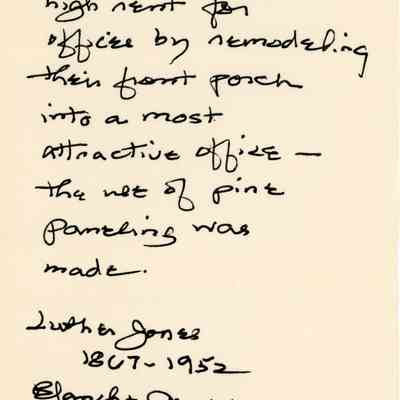 high rent for
offices by remodeling
their front porch
into a most
attractive office —
the use of pine
paneling was
made.
Luther Jones
1867-1952
Blanche